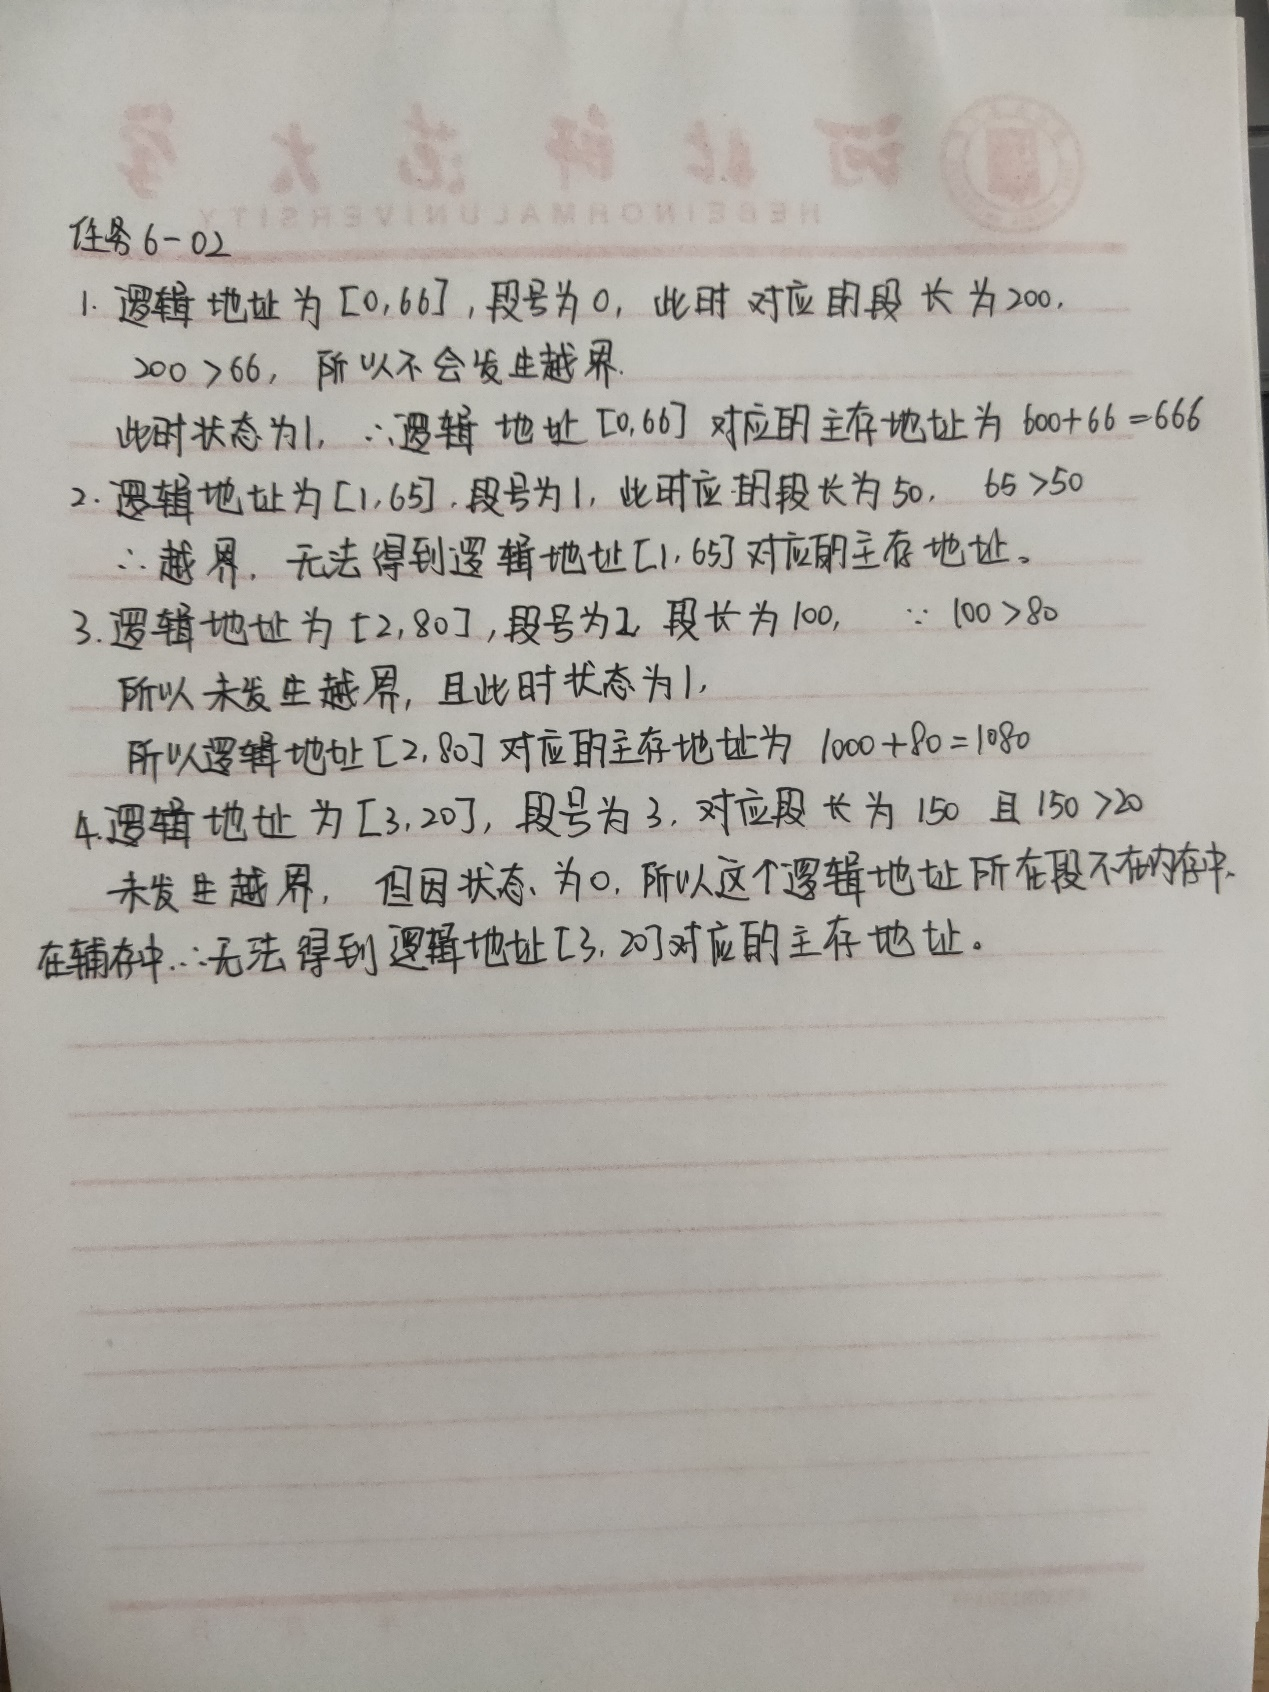 河北师范大学
HEBEI NORMAL UNIVERSITY
任务6-02
1. 逻辑地址为[0,66],段号为0,此时对应的段长为200,
200>66,所以不会发生越界.
此时状态为1,∴逻辑地址[0,66]对应的主存地址为600+66=666
2. 逻辑地址为[1,65].段号为1,此时应的段长为50, 65>50
∴越界,无法得到逻辑地址[1,65]对应的主存地址。
3. 逻辑地址为[2,80],段号为2,段长为100, ∵100>80
所以未发生越界,且此时状态为1,
所以逻辑地址[2,80]对应的主存地址为 1000+80=1080
4. 逻辑地址为[3,20],段号为3,对应段长为150 且150>20
未发生越界,但因状态为0,所以这个逻辑地址所在段不在内存中.
在辅存中.∴无法得到逻辑地址[3,20]对应的主存地址。